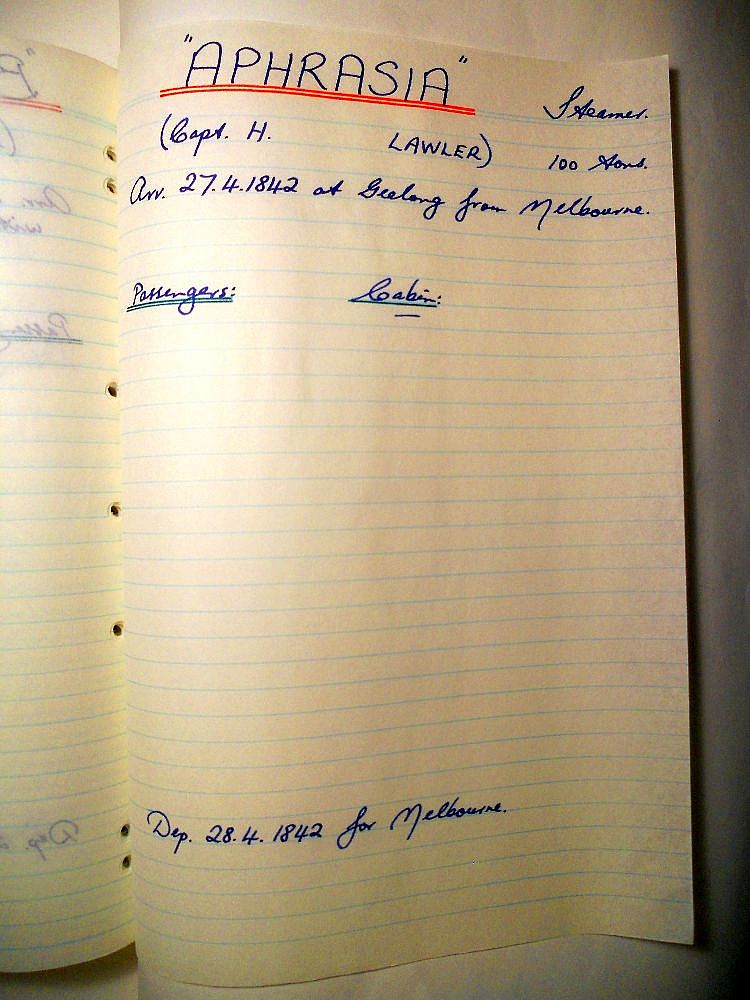 "APHRASIA"
Steamer.
(Capt. H. LAWLER) 100 tons.
Arr. 27.4.1842 at Geelong from Melbourne.
Passengers: Cabin:
Dep. 28.4.1842 for Melbourne.